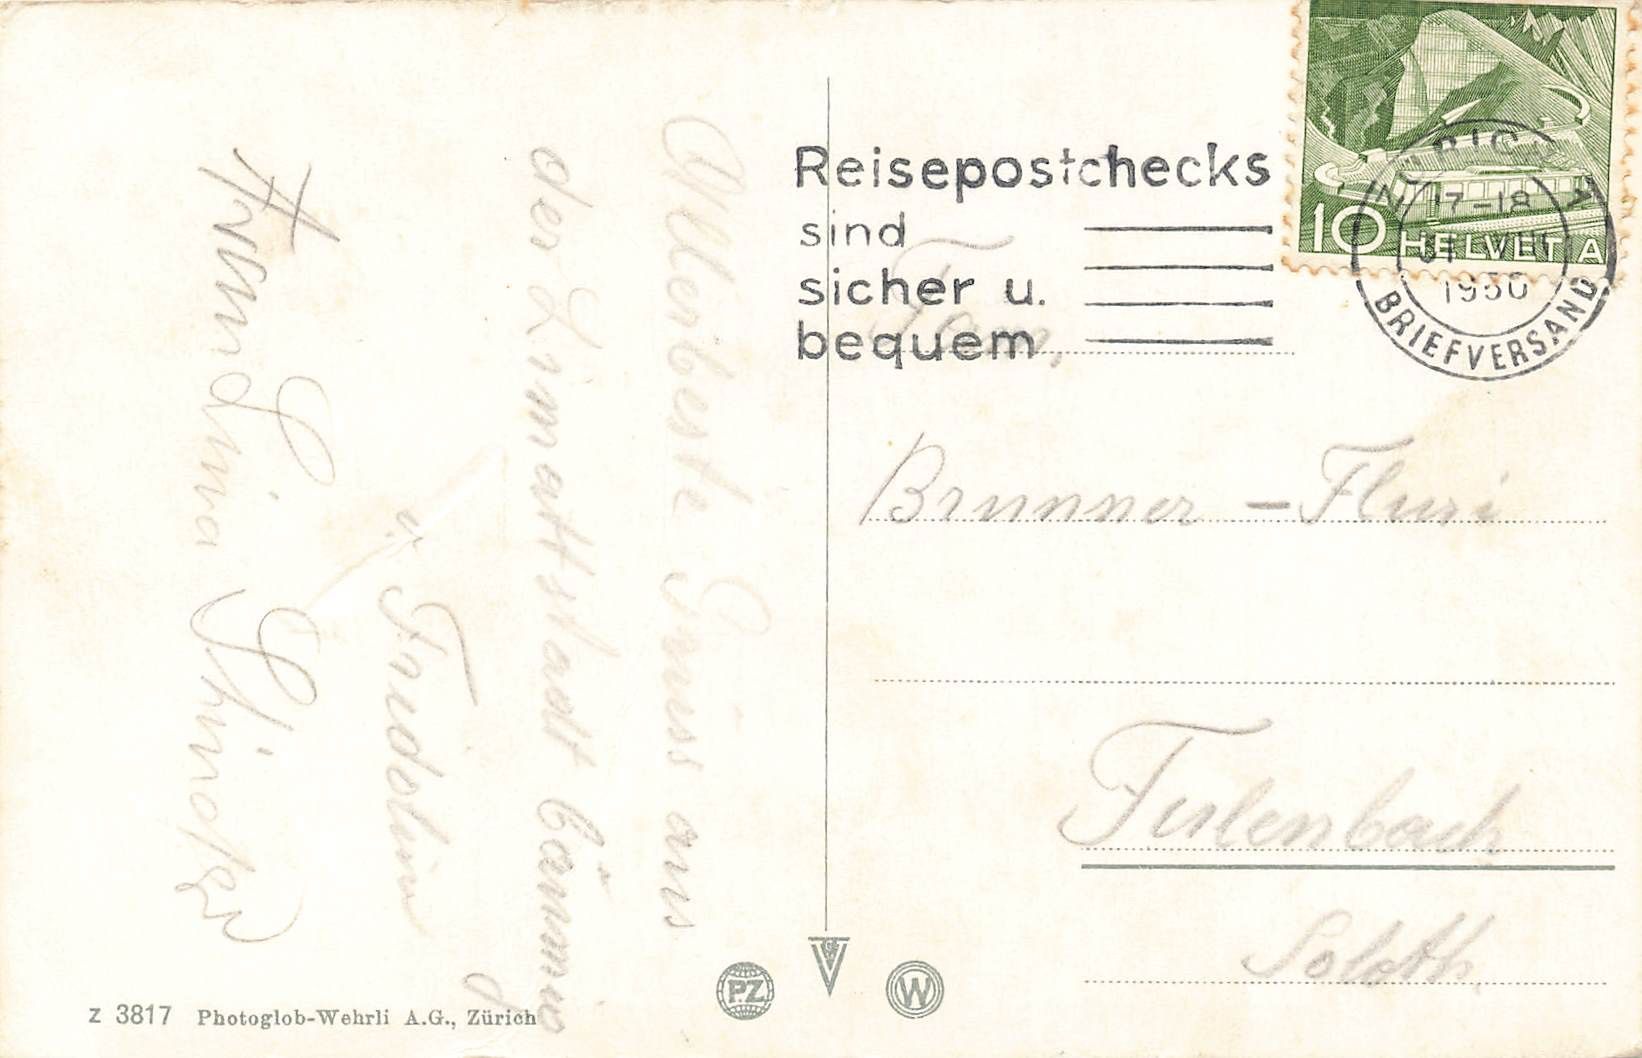 Allerbeste Grüss aus
der Limattstadt
u. Fridolin
Anna Lina
Reisepostchecks
sind
sicher u.
bequem
10 HELVETIA
17-18
1950
BRIEFVERSAND
Fam.
Brunner - Fluri
Fulenbach
Soloth.
PZ
W
Z 3817 Photoglob-Wehrli A.G., Zürich